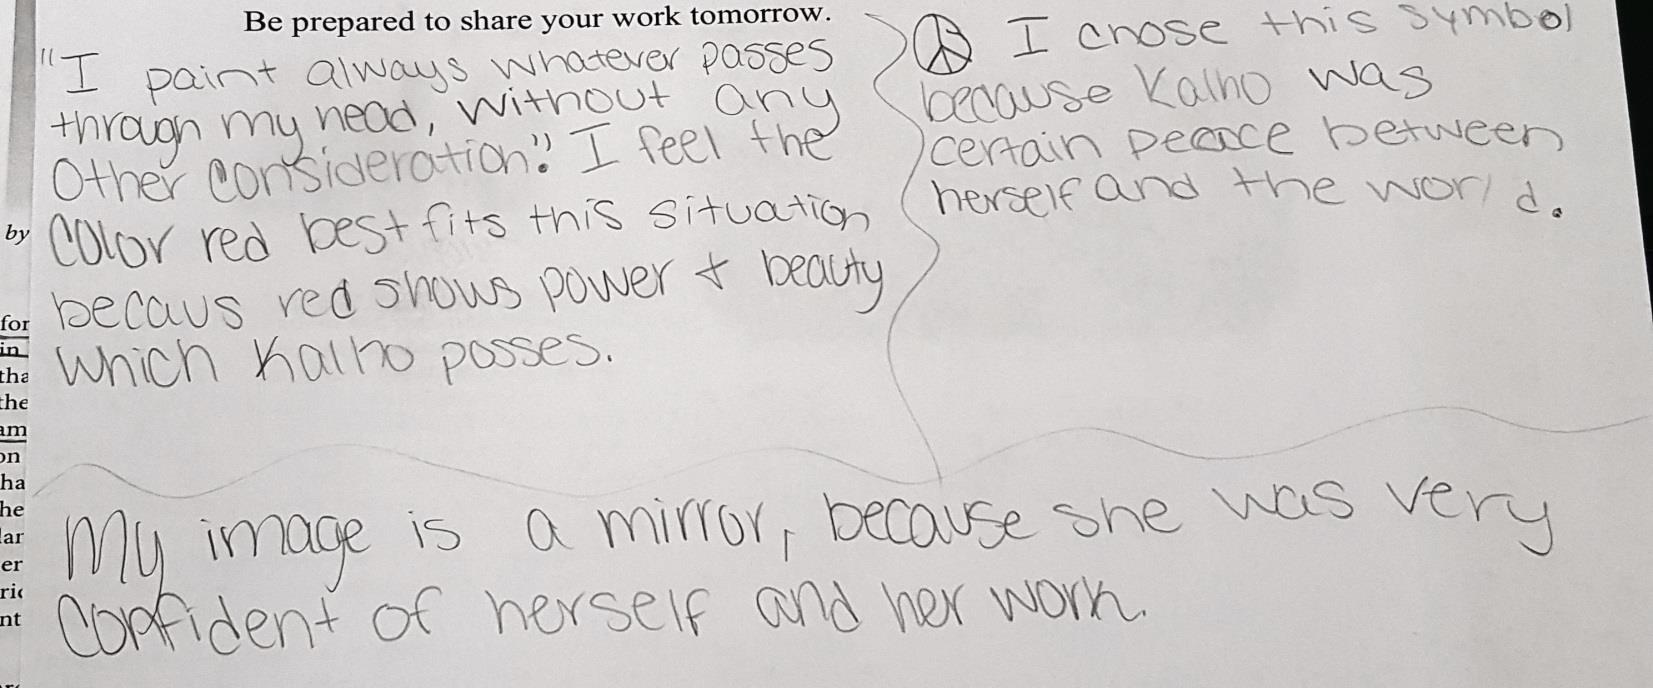 Be prepared to share your work tomorrow.
"I paint always whatever passes
through my head, without any
other consideration." I feel the
color red best fits this situation
becaus red shows power + beauty
which Kalho posses.
I chose this symbol
because Kalho was
certain peace between
herself and the world.
My image is a mirror, because she was very
confident of herself and her work.
by
for
in
tha
the
am
on
ha
he
lar
er
ric
nt